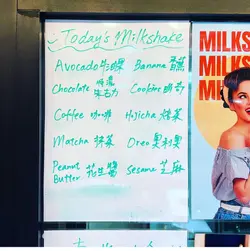 Today's Milkshake
Avocado 牛油果 Banana 香蕉
Chocolate 特濃朱古力 Cookies
Coffee 咖啡 Hojicha 焙茶
Matcha 抹茶 Oreo 奧利奧
Peanut Butter 花生醬 Sesame 芝麻
MILKS
MILKS
MILKS